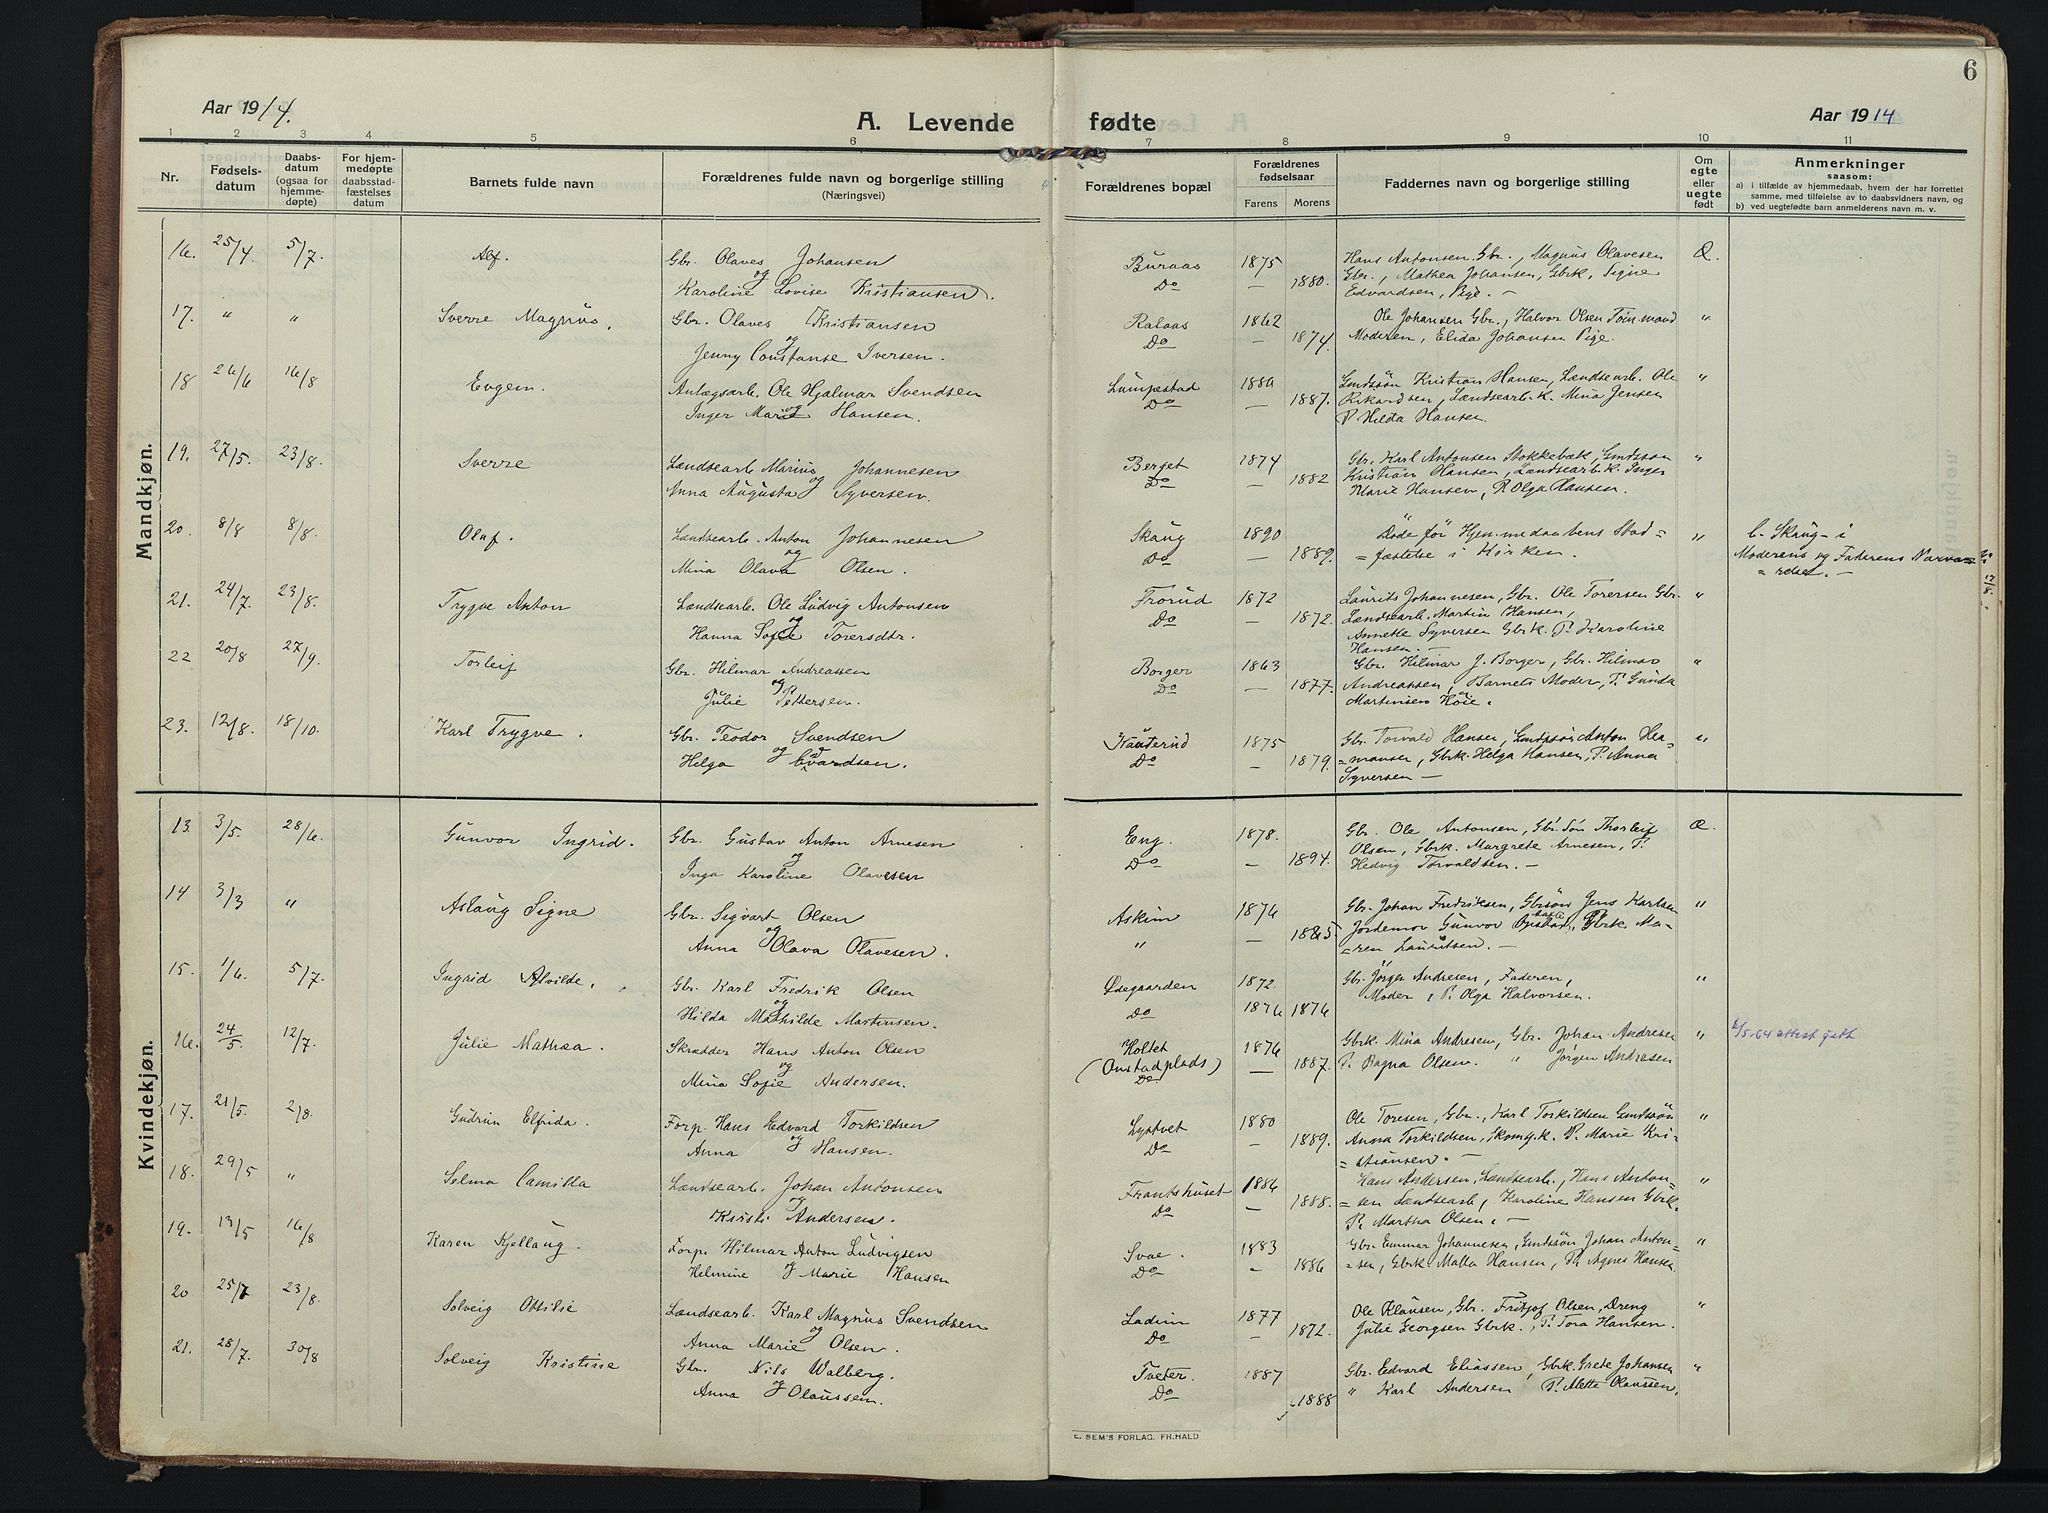 6
Aar 1914.
A. Levende fødte
Aar 1914
1 2 3 4 5 6 7 8 9 10 11
Nr.
Fødsels-
datum
Daabs-
datum
(ogsaa for
hjemme-
døpte)
For hjem-
medøpte
daabsstad-
fæstelses
datum
Barnets fulde navn
Forældrenes fulde navn og borgerlige stilling
(Næringsvei)
Forældrenes bopæl
Forældrenes
fødselsaar
Farens Morens
Faddernes navn og borgerlige stilling
Om
egte
eller
uegte
født
Anmerkninger
saasom:
a) i tilfælde av hjemmedaab, hvem der har forrettet
samme, med tilføielse av to daabsvidners navn, og
b) ved uegtefødte barn anmelderens navn m. v.
Mandkjøn.
16. 25/4 5/7 Alf. Gbr. Olaves Johansen Buraas 1875 Hans Antonsen Gbr., Magnus Olavesen Æ.
og Do — 1880. Gbr., Mathea Johansen, Gbrk, Signe
Karoline Lovise Kristiansen. Edvardsen, Pige. —
17. " " Sverre Magnus. Gbr. Olaves Kristiansen Ralaas 1862 Ole Johansen Gbr., Halvor Olsen Tømmand "
og Do — 1874. Moderen, Elida Johansen Pige.
Jenny Constanse Iversen.
18 26/6 16/8 Eugem. Anlægsarb. Ole Hjalmar Svendsen Lumpestad 1880 Gmdssøn Kristian Hansen, Lændsearb. Ole "
Inger Marie og Hansen. Do — 1887. Rikardsen, Lændsearb.k. Mina Jensen
P. Hilda Hansen.
19. 27/5. 23/8. Sverre Lændsearb Marius Johannesen Berget 1874 Gbr. Karl Antonsen Stokkebæk, Gmdssøn "
og Do — 1882 Kristian Hansen, Lændsearb.k. Inger
Anna Augusta Syversen. Marie Hansen, P. Olga Hansen.
20. 8/8 8/8. Olaf. Lændsearb. Anton Johannesen Skaug 1890 Døde før Hjemmedaabens Stad= " b. Skaug i
og Do — 1889. =fæstelse i Kirken. Moderens og Faderens Nærvæ=
Mina Olava Olsen. =relse. —
21. 24/7. 23/8. Trygve Anton Lændsearb. Ole Ludvig Antonsen Frorud 1872 Laurits Johannesen, Gbr. Ole Toresen Gbr. "
og Do — 1872. Lændsearb. Martin Hansen,
Hanna Sofie Toresdtr. Annette Syversen Gbrk. P. Karoline
Hansen. —
22 20/8 27/9. Torleif Gbr. Hilmar Andreassen Borger 1863 Gbr. Hilmar J. Borger, Gbr. Hilmar "
og Do — 1877. Andreassen, Barnets Moder, P. Gunda
Julie Pettersen. Martinsen Høie.
23. 12/8. 18/10. Karl Trygve. Gbr. Teodor Svendsen Kauterud 1875 Gbr. Torvald Hansen, Gmdssøn Anton Her= "
Helga og Edvardsen. Do — 1879. =mansen, Gbrk. Helga Hansen, P. Anna
Syversen —
Kvindekjøn.
13. 3/5 28/6. Gunvor Ingrid. Gbr. Gustav Anton Arnesen Eng. 1878. Gbr. Ole Antonsen, Gbr. Søn Thorleif Æ.
og Do — 1894. Olsen, Gbrk. Margrete Arnesen, P.
Inga Karoline Olavesen Hedvig Torvaldsen. —
14 3/3 " Aslaug Signe Gbr. Sigvart Olsen Askim 1876 Gbr. Johan Fredriksen, Gbrsøn Jens Karlsen "
og " — 1885. Jordemor Gunvor Opstad, Gbrk. Ma=
Anna Olava Olavesen. =ren Lauritsen. —
15. 1/6. 5/7. Ingrid Alvilde. Gbr. Karl Fredrik Olsen Ødegaarden 1872. Gbr. Jørgen Andresen, Faderen, "
og Do 1876 1876 Moder, P. Olga Halvorsen.
Hilda Mathilde Martinsen.
16. 24/5 12/7. Julie Mathea. Skrædder Hans Anton Olsen Holtet 1876 Gbrk. Mina Andresen, Gbr. Johan Andresen " 2/5-64 attest geth
og (Onstadplads) — 1887. P. Ragna Olsen. " Jørgen Andresen
Mina Sofie Andersen. Do
17. 21/5. 2/8. Gudrun Elfrida. Forp. Hans Edvard Torkildsen Lystvet 1880 Ole Toresen, Gbr., Karl Torkildsen Gmdssøn "
Anna og Hansen. Do 1889. Anna Torkildsen, Skomg.k. P. Marie Kri=
=stiansen. —
18. 29/5 " Selma Camilla Lændsearb. Johan Antonsen Frantshuset 1886 Hans Andersen, Lændsearb., Hans Anton= "
og Do — 1888. =sen Lændsearb, Karoline Hansen Gbrk.
Kristi Andersen. P. Martha Olsen. —
19. 13/5 16/8 Karen Kjellaug. Forp. Hilmar Anton Ludvigsen Svae. 1883 Gbr. Gunnar Johannesen, Gmdssøn Johan Anton= "
Helmine og Marie Hansen Do — 1886 =sen, Gbrk. Malla Hansen, P. Agnes Hansen.
20 25/7 23/8. Solveig Ottilie Lændsearb. Karl Magnus Svendsen Ladim 1877 Ole Klausen, Gbr. Fritjof Olsen, Dreng "
og Do — 1872. Julie Georgsen Gbrk., P. Tora Hansen.
Anna Marie Olsen.
21. 28/7. 30/8 Solveig Kristine Gbr. Nils Walberg. Tveter. 1887 Gbr. Edvard Eliassen, Gbrk. Grete Johansen "
Anna og Olaussen. Do 1888 " Karl Andersen P. Alette Olaussen.
E. SEM'S FORLAG. FR.HALD